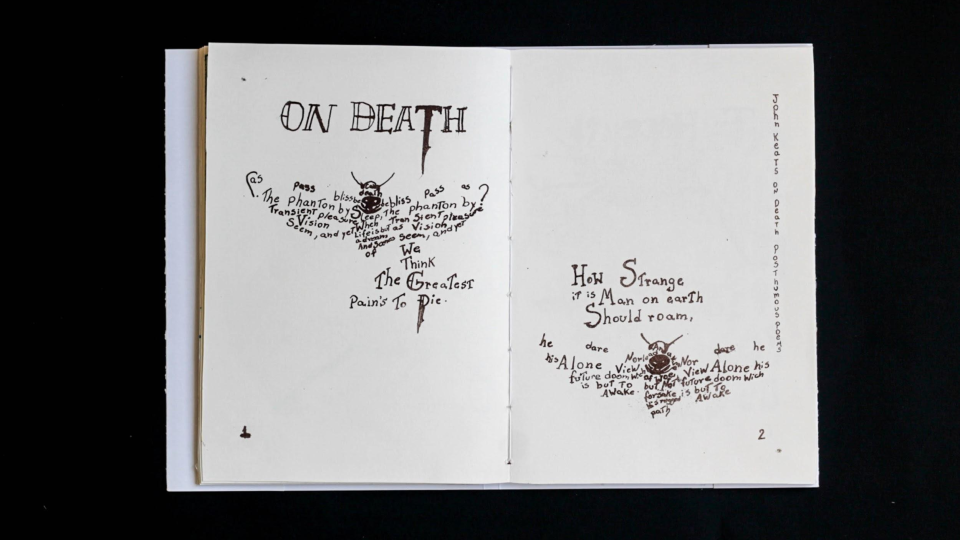 ON DEATH
as pass bliss be bliss pass as?
The phanton by Sleep, The phanton by
Transient pleasure When Transient pleasure
Vision Life is but as Vision
Seem, and yet a dream seem, and yet
And scenes
of We
Think
The Greatest
Pain's To Die.
1
John Keats on Death Posthumous poems
How Strange
it is Man on earth
Should roam,
he dare dare he
his Alone View Nor View Alone his
future doom wich future doom wich
is but To but Not is but To
Awake. forsake Awake
his rugged
path
2